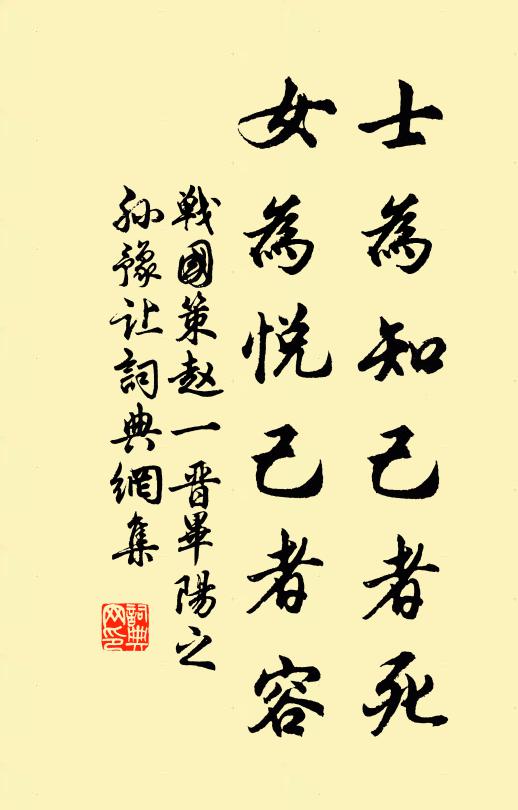 士為知己者死
女為悦己者容
戰國策赵一晋畢陽之
孙豫让詞典網集
詞典网印